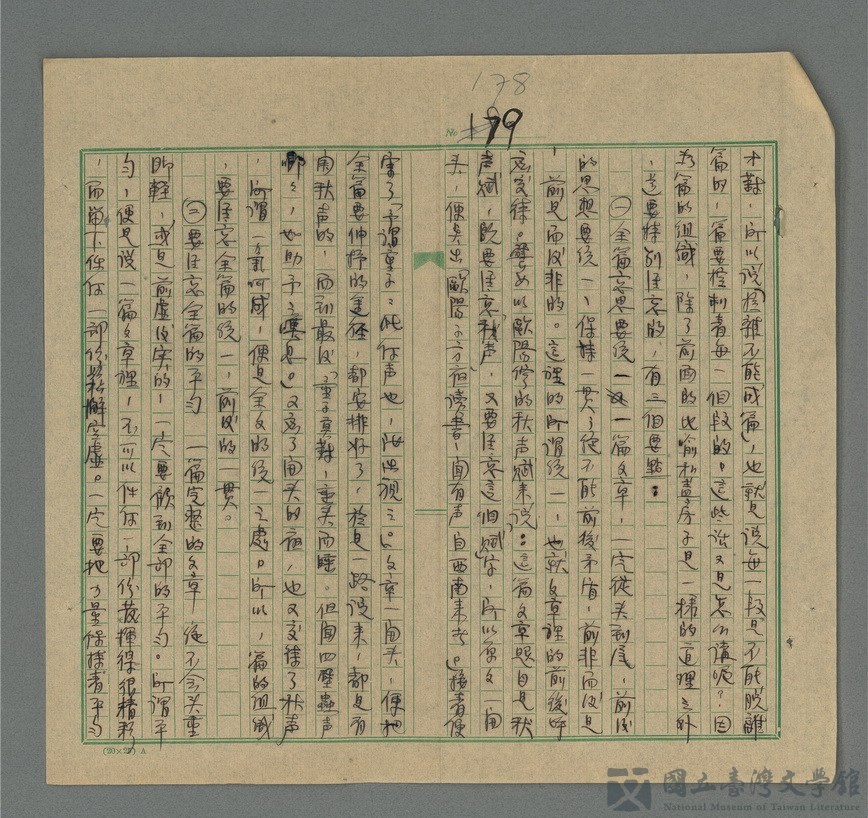 178
No. 199
才對，所以說「控離不能成篇」，也就是說每一段是不能脫離
篇的，篇要控制着每一個段的。這些話又是怎的講呢？因
為篇的組織，除了前面的比喻和蓋房子是一樣的道理之外
，還要特別注意的，有三個要點：
㊀全篇意思要統一 一篇文章，一定從頭到尾，前後
的思想要統一，保持一貫，從不能前後矛盾，前非而後是
，前是而後非的。這裡的所謂統一，也就文章裡的前後呼
應交待。譬如以歐陽修的秋声賦來說：這篇文章題目是秋
声賦，既要注意「秋声」，又要注意這個「賦」字，所以原文一開
头，便点出「歐陽子方夜讀書，聞有声自西南來者」。接着便
寫了「予謂童子：此何声也，汝出視之。」文章一開头，便把
全篇要伸抒的途徑，都安排好了，於是一路說來，都是有
関秋声的，而到最後「童子莫對，垂头而睡。但聞四壁蟲声
唧唧，如助予之嘆息。」又應了開头的夜，也又交待了秋声
，所謂一氣呵成，便是全文的統一之處。所以，篇的組織
，要注意全篇的統一，前後的一貫。
㊁要注意全篇的平勻 一篇完整的文章，從不会头重
脚輕，或是前虛後实的，一定要顧到全部的平勻。所謂平
勻，便是說一篇文章裡，不可以任何一部份發揮得很精彩
，而留下任何一部份鬆懈空虛。一定要把力量保持着平勻
(20×25) A
國立臺灣文學館
National Museum of Taiwan Literature